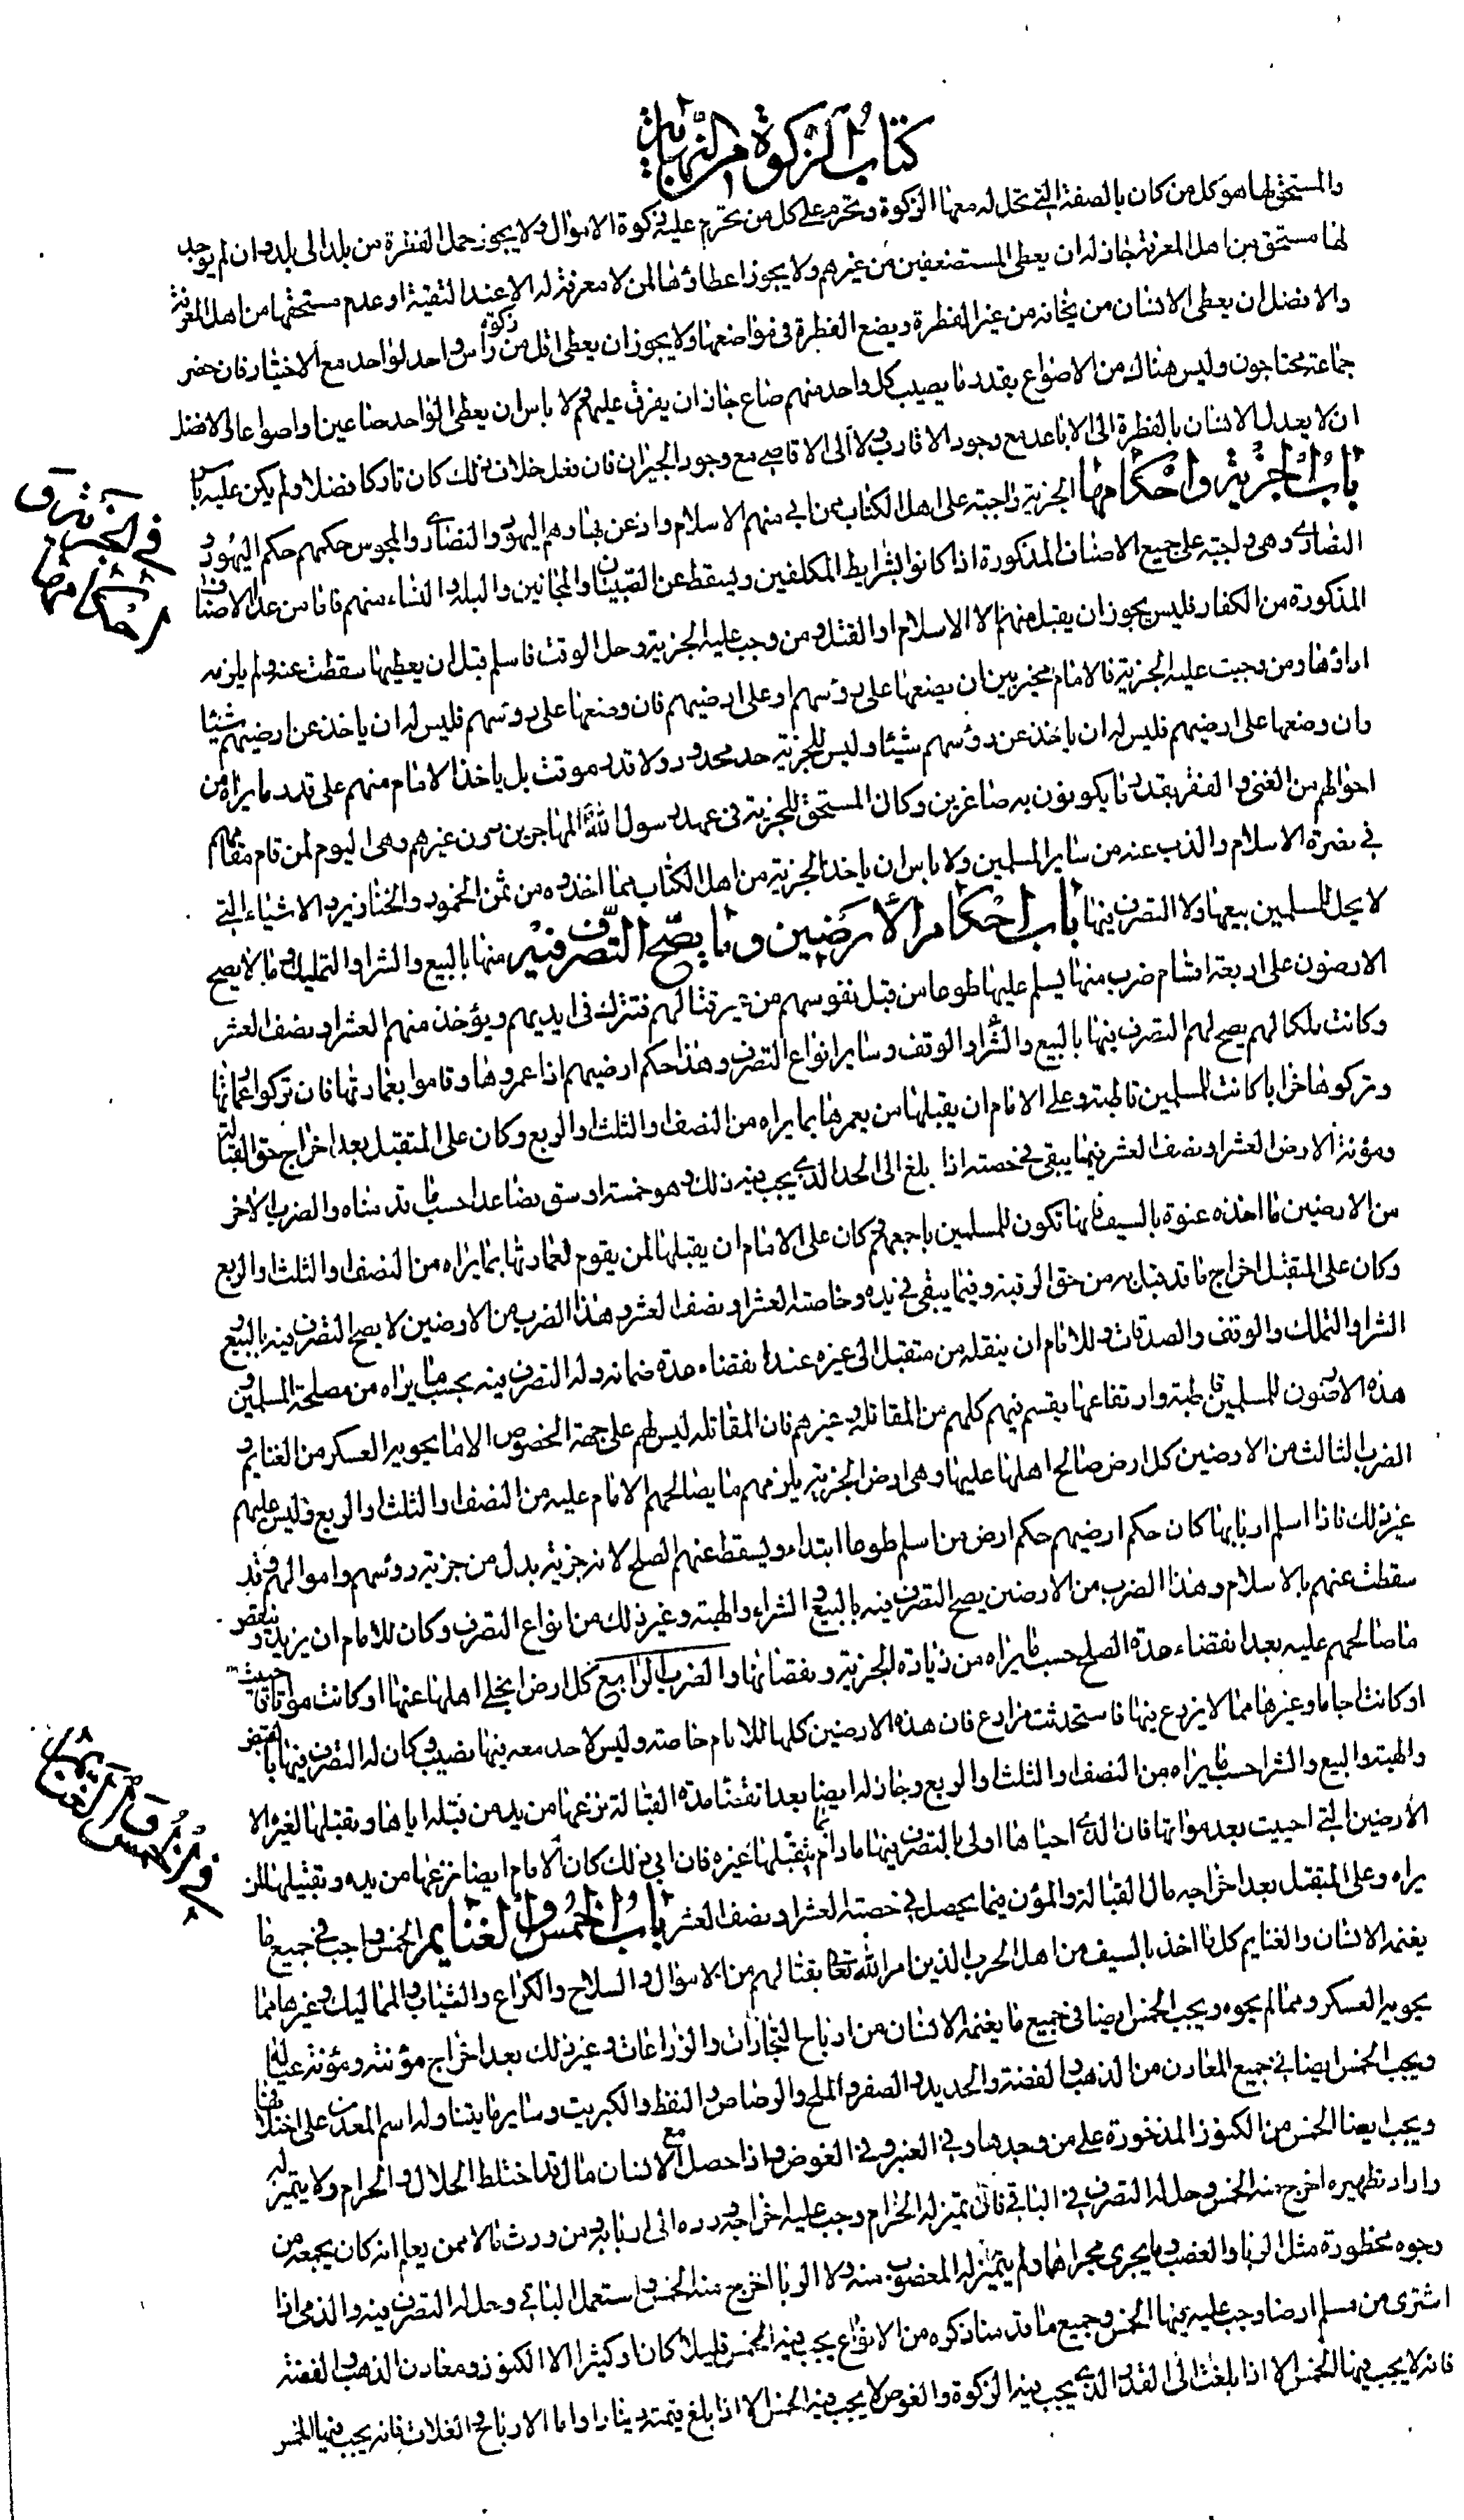 كتاب الزكوة من النهاية
والمستحق لها هو كل من كان بالصفة التي تحل له معها الزكوة وتحرم على كل من تحرم عليه زكوة الاموال ولا يجوز حمل الفطرة من بلد الى بلد وان لم يوجد
لها مستحق من اهل المعرفة جاز له ان يعطى المستضعفين من غيرهم ولا يجوز اعطاؤها لمن لا معرفة له الا عند التقية او عدم مستحقها من اهل المعرفة
والافضل ان يعطى الانسان من يخافه من غير الفطرة ويضع الفطرة في مواضعها ولا يجوز ان يعطى اقل من زكوة راس واحد لواحد مع الاختيار فان حضر
جماعة محتاجون وليس هناك من الاصواع بقدر ما يصيب كل واحد منهم صاع جاز ان يفرق عليهم ولا باس ان يعطى الواحد صاعين او اصواعا والافضل
ان لا يعدل الانسان بالفطرة الى الاباعد مع وجود الاقارب ولا الى الاقاصي مع وجود الجيران فان فعل خلاف ذلك كان تاركا فضلا ولم يكن عليه باس
باب الجزية واحكامها الجزية واجبة على اهل الكتاب ممن ابى منهم الاسلام واذعن بها وهم اليهود والنصارى والمجوس حكمهم حكم اليهود و
النصارى وهى واجبة على جميع الاصناف المذكورة اذا كانوا بشرايط المكلفين ويسقط عن الصبيان والمجانين والبله والنساء منهم فاما من عدا الاصناف
المذكورة من الكفار فليس يجوز ان يقبل منهم الا الاسلام او القتل ومن وجب عليه الجزية وحل الوقت فاسلم قبل ان يعطيها سقطت عنه ولم يلزمه
اداؤها ومن وجبت عليه الجزية فالامام مخير بين ان يضعها على رؤسهم او على ارضيهم فان وضعها على رؤسهم فليس له ان ياخذ عن ارضيهم شيئا
وان وضعها على ارضيهم فليس له ان ياخذ عن رؤسهم شيئا وليس للجزية حد محدود ولا قدر موقت بل ياخذ الامام منهم على قدر ما يراه من
احوالهم من الغنى والفقر بقدر ما يكونون به صاغرين وكان المستحق للجزية في عهد رسول الله المهاجرين دون غيرهم وهى اليوم لمن قام مقامهم
في نصرة الاسلام والذب عنه من ساير المسلمين ولا باس ان ياخذ الجزية من اهل الكتاب مما اخذوه من ثمن الخمور والخنازير والاشياء التي
لا يحل للمسلمين بيعها ولا التصرف فيها باب احكام الارضين وما يصح التصرف فيه منها بالبيع والشرا والتمليك وما لا يصح
الارضون على اربعة اقسام ضرب منها يسلم عليها طوعا من قبل نفوسهم من غير قتال لهم فتترك في ايديهم ويؤخذ منهم العشر او نصف العشر
وكانت ملكا لهم يصح لهم التصرف فيها بالبيع والشراء والوقف وساير انواع التصرف وهذا حكم ارضيهم اذا عمروها وقاموا بعمارتها فان تركوا عمارتها
وتركوها خرابا كانت للمسلمين قاطبة وعلى الامام ان يقبلها من يعمرها بما يراه من النصف والثلث والربع وكان على المتقبل بعد اخراج حق القبالة
ومؤنة الارض العشر او نصف العشر فيما يبقى في حصته اذا بلغ الى الحد الذي يجب فيه ذلك وهو خمسة اوسق فصاعدا حسب ما قدمناه والضرب الاخر
من الارضين ما اخذه عنوة بالسيف فانها تكون للمسلمين باجمعهم كان على الامام ان يقبلها لمن يقوم بعمارتها بما يراه من النصف والثلث والربع
وكان على المتقبل اخراج ما قد قبل به من حق الرقبة وفيما يبقى في يده وخاصته العشر او نصف العشر وهذا الضرب من الارضين لا يصح التصرف فيه بالبيع و
الشرا والتملك والوقف والصدقات وللامام ان ينقله من متقبل الى غيره عند انقضاء مدة ضمانه وله التصرف فيه بحسب ما يراه من مصلحة المسلمين و
هذه الارضون للمسلمين قاطبة وارتفاعها يقسم فيهم كلهم من المقاتلة وغيرهم فان المقاتلة ليس لهم على جهة الخصوص الا ما يحويه العسكر من الغنايم و
الضرب الثالث من الارضين كل ارض صالح اهلها عليها وهى ارض الجزية يلزمهم ما يصالحهم الامام عليه من النصف والثلث والربع وليس عليهم
غير ذلك فاذا اسلم اربابها كان حكم ارضيهم حكم ارض من اسلم طوعا ابتداء ويسقط عنهم الصلح لانه جزية بدل من جزية رؤسهم واموالهم وقد
سقطت عنهم بالاسلام وهذا الضرب من الارضين يصح التصرف فيه بالبيع والشراء والهبة وغير ذلك من انواع التصرف وكان للامام ان يزيد وينقص
ما صالحهم عليه بعد انقضاء مدة الصلح حسب ما يراه من زيادة الجزية ونقصانها والضرب الرابع كل ارض انجلى اهلها عنها او كانت مواتا فاحييت
او كانت اجاما وغيرها مما لا يزرع فيها فاستحدثت مزارع فان هذه الارضين كلها للامام خاصة وليس لاحد معه فيها نصيب وكان له التصرف فيها بالقبض
والهبة والبيع والشرا حسب ما يراه من النصف والثلث والربع وجاز له ايضا بعد انقضا مدة القبالة نزعها من يد من قبله اياها وتقبلها لغيره الا
الارضين التي احييت بعد مواتها فان الذي احياها اولى بالتصرف فيها ما دام يتقبلها بما يتقبلها غيره فان ابى ذلك كان للامام ايضا نزعها من يده وتقبيلها لمن
يراه وعلى المتقبل بعد اخراجه مال القبالة والمؤن فيما يحصل في حصته العشر او نصف العشر باب الخمس والغنايم الخمس واجب في جميع ما
يغنمه الانسان والغنايم كل ما اخذ بالسيف من اهل الحرب الذين امر الله تعالى بقتالهم من الاموال والسلاح والكراع والثياب والمماليك وغيرها مما
يحويه العسكر ومما لم يحوه ويجب الخمس ايضا في جميع ما يغنمه الانسان من ارباح التجارات والزراعات وغير ذلك بعد اخراج مؤنته ومؤنة عياله
ويجب الخمس ايضا في جميع المعادن من الذهب والفضة والحديد والصفر والملح والرصاص والنفط والكبريت وساير ما يتناوله اسم المعدن على اختلافها
ويجب ايضا الخمس من الكنوز المذخورة على من وجدها وفي العنبر وفي الغوص واذا حصل مع الانسان مال قد اختلط الحلال والحرام ولا يتميز له
واراد تطهيره اخرج منه الخمس وحل له التصرف في الباقي فان تميز له الحرام وجب عليه اخراجه ورده الى اربابه ومن ورث مالا ممن يعلم انه كان يجمعه من
وجوه محظورة مثل الربا والغصب وما يجرى مجراهما ولم يتميز له المغصوب منه ولا الربا اخرج منه الخمس واستعمل الباقي وحل له التصرف فيه والذمي اذا
اشترى من مسلم ارضا وجب عليه فيها الخمس وجميع ما قدمنا ذكره من الانواع يجب فيه الخمس قليلا كان او كثيرا الا الكنوز ومعادن الذهب والفضة
فانه لا يجب فيها الخمس الا اذا بلغت الى القدر الذي يجب فيه الزكوة والغوص لا يجب فيه الخمس الا اذا بلغ قيمته دينارا واما الارباح والغلات فانه يجب فيها الخمس
في الجزية و
احكامها
في الخمس والغنايم